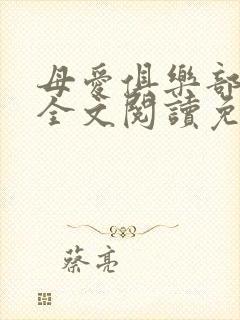 母愛俱樂部
全文閱讀免
蔡亮